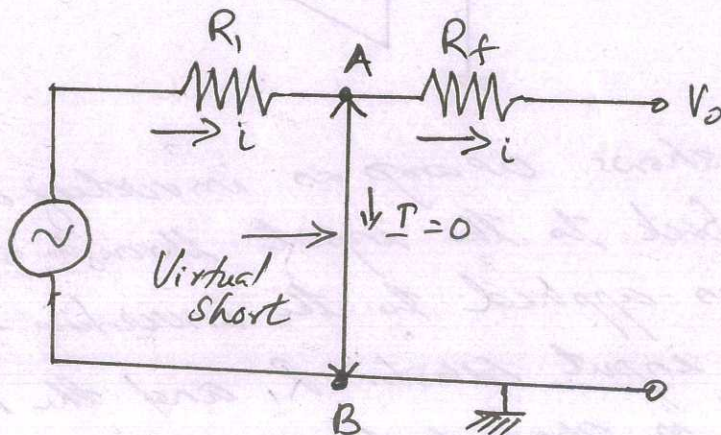 R1
A
Rf
Vo
i
i
I = 0
Virtual
Short
B